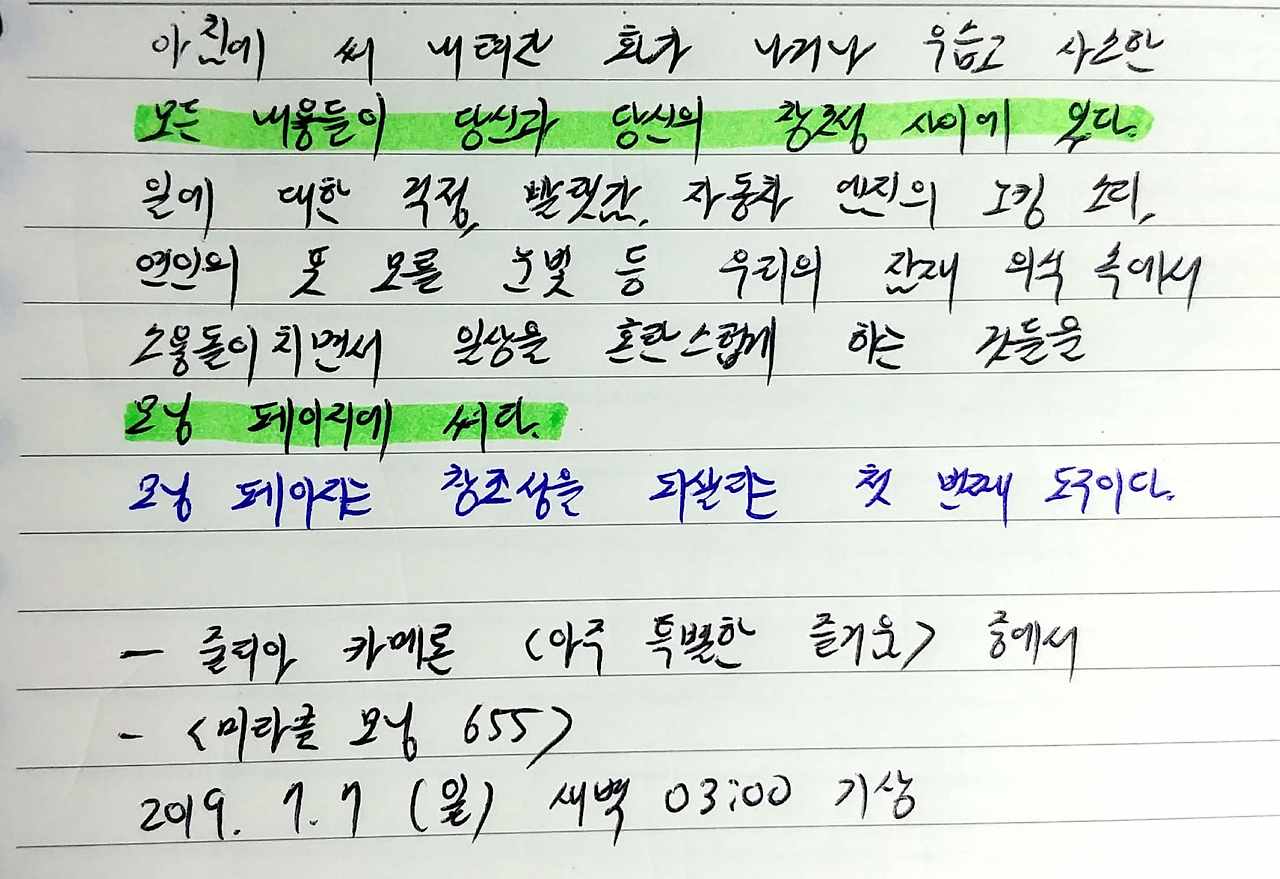 아침에 써 내려간 화가 나거나 우습고 사소한
모든 내용들이 당신과 당신의 창조성 사이에 있다.
일에 대한 걱정, 빨랫감, 자동차 엔진의 노킹 소리,
연인의 뜻 모를 눈빛 등 우리의 잠재 의식 속에서
소용돌이 치면서 일상을 혼란스럽게 하는 것들을
모닝 페이지에 써라.
모닝 페이지는 창조성을 되살리는 첫 번째 도구이다.
- 줄리아 카메론 <아주 특별한 즐거움> 중에서
- <미라클 모닝 655>
2019. 7. 7 (일) 새벽 03:00 기상